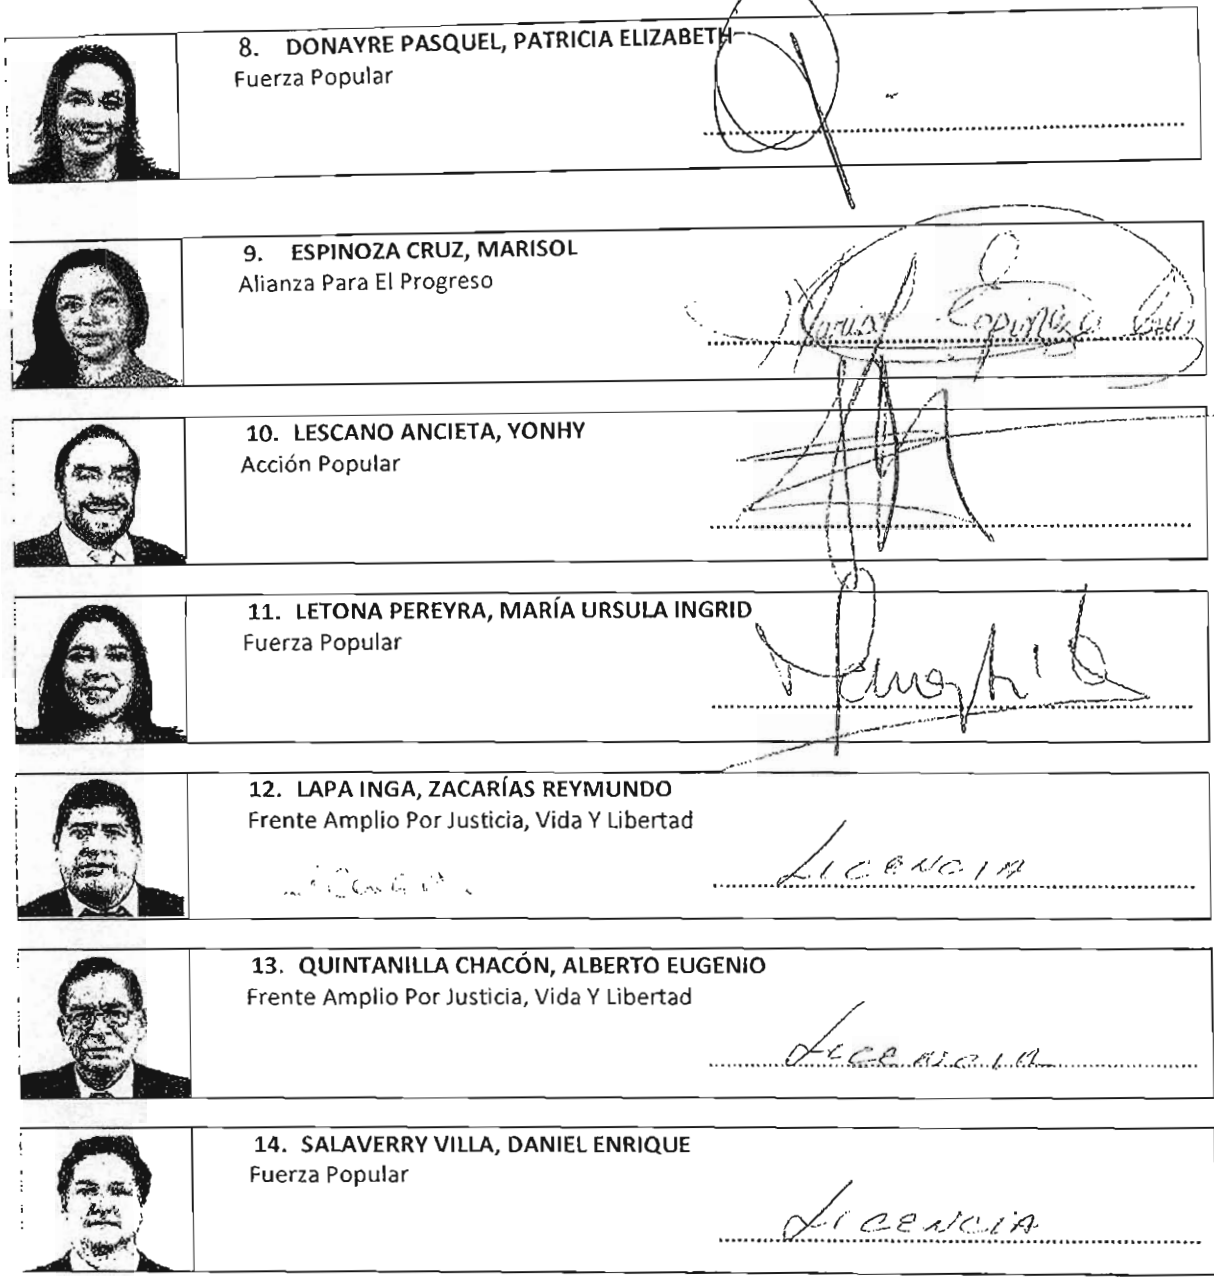 8. DONAYRE PASQUEL, PATRICIA ELIZABETH
Fuerza Popular
9. ESPINOZA CRUZ, MARISOL
Alianza Para El Progreso
Marisol Espinoza Cruz
10. LESCANO ANCIETA, YONHY
Acción Popular
11. LETONA PEREYRA, MARÍA URSULA INGRID
Fuerza Popular
12. LAPA INGA, ZACARÍAS REYMUNDO
Frente Amplio Por Justicia, Vida Y Libertad
LICENCIA
13. QUINTANILLA CHACÓN, ALBERTO EUGENIO
Frente Amplio Por Justicia, Vida Y Libertad
LICENCIA
14. SALAVERRY VILLA, DANIEL ENRIQUE
Fuerza Popular
LICENCIA